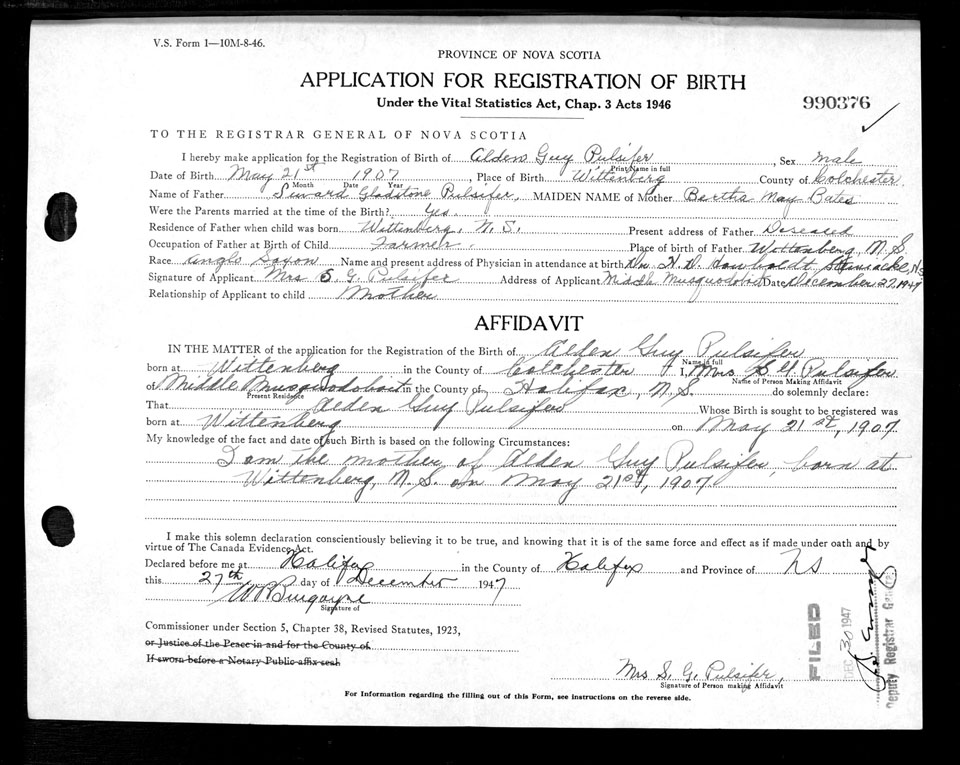 V.S. Form 1—10M-8-46.
PROVINCE OF NOVA SCOTIA
APPLICATION FOR REGISTRATION OF BIRTH
Under the Vital Statistics Act, Chap. 3 Acts 1946
990376
TO THE REGISTRAR GENERAL OF NOVA SCOTIA
I hereby make application for the Registration of Birth of Alden Guy Pulsifer, Sex male
Print Name in full
Date of Birth May 21st 1907, Place of Birth Wittenberg County of Colchester
Month Date Year
Name of Father Seward Gladstone Pulsifer, MAIDEN NAME of Mother Bertha May Bates
Were the Parents married at the time of the Birth? Yes.
Residence of Father when child was born Wittenberg, N.S. Present address of Father Deseased
Occupation of Father at Birth of Child Farmer. Place of birth of Father Wittenberg, N.S.
Race Anglo Saxon Name and present address of Physician in attendance at birth Dr. H.D.
Signature of Applicant Mrs S. G. Pulsifer Address of Applicant Middle Musquodoboit Date December 27, 1947
Relationship of Applicant to child Mother
AFFIDAVIT
IN THE MATTER of the application for the Registration of the Birth of Alden Guy Pulsifer
Name in full
born at Wittenberg in the County of Colchester I, Mrs S G Pulsifer
Name of Person Making Affidavit
of Middle Musquodoboit in the County of Halifax, N.S. do solemnly declare:
Present Residence
That Alden Guy Pulsifer Whose Birth is sought to be registered was
born at Wittenberg on May 21st, 1907
My knowledge of the fact and date of such Birth is based on the following Circumstances:
I am the mother of Alden Guy Pulsifer, born at
Wittenberg, N.S. on May 21st, 1907
I make this solemn declaration conscientiously believing it to be true, and knowing that it is of the same force and effect as if made under oath and by
virtue of The Canada Evidence Act.
Declared before me at Halifax in the County of Halifax and Province of NS
this 27th day of December 1947
W Burgoyne
Signature of
Commissioner under Section 5, Chapter 38, Revised Statutes, 1923,
or Justice of the Peace in and for the County of
If sworn before a Notary Public affix seal
Mrs S. G. Pulsifer,
Signature of Person making Affidavit
FILED
DEC 30 1947
Deputy Registrar General
For Information regarding the filling out of this Form, see instructions on the reverse side.